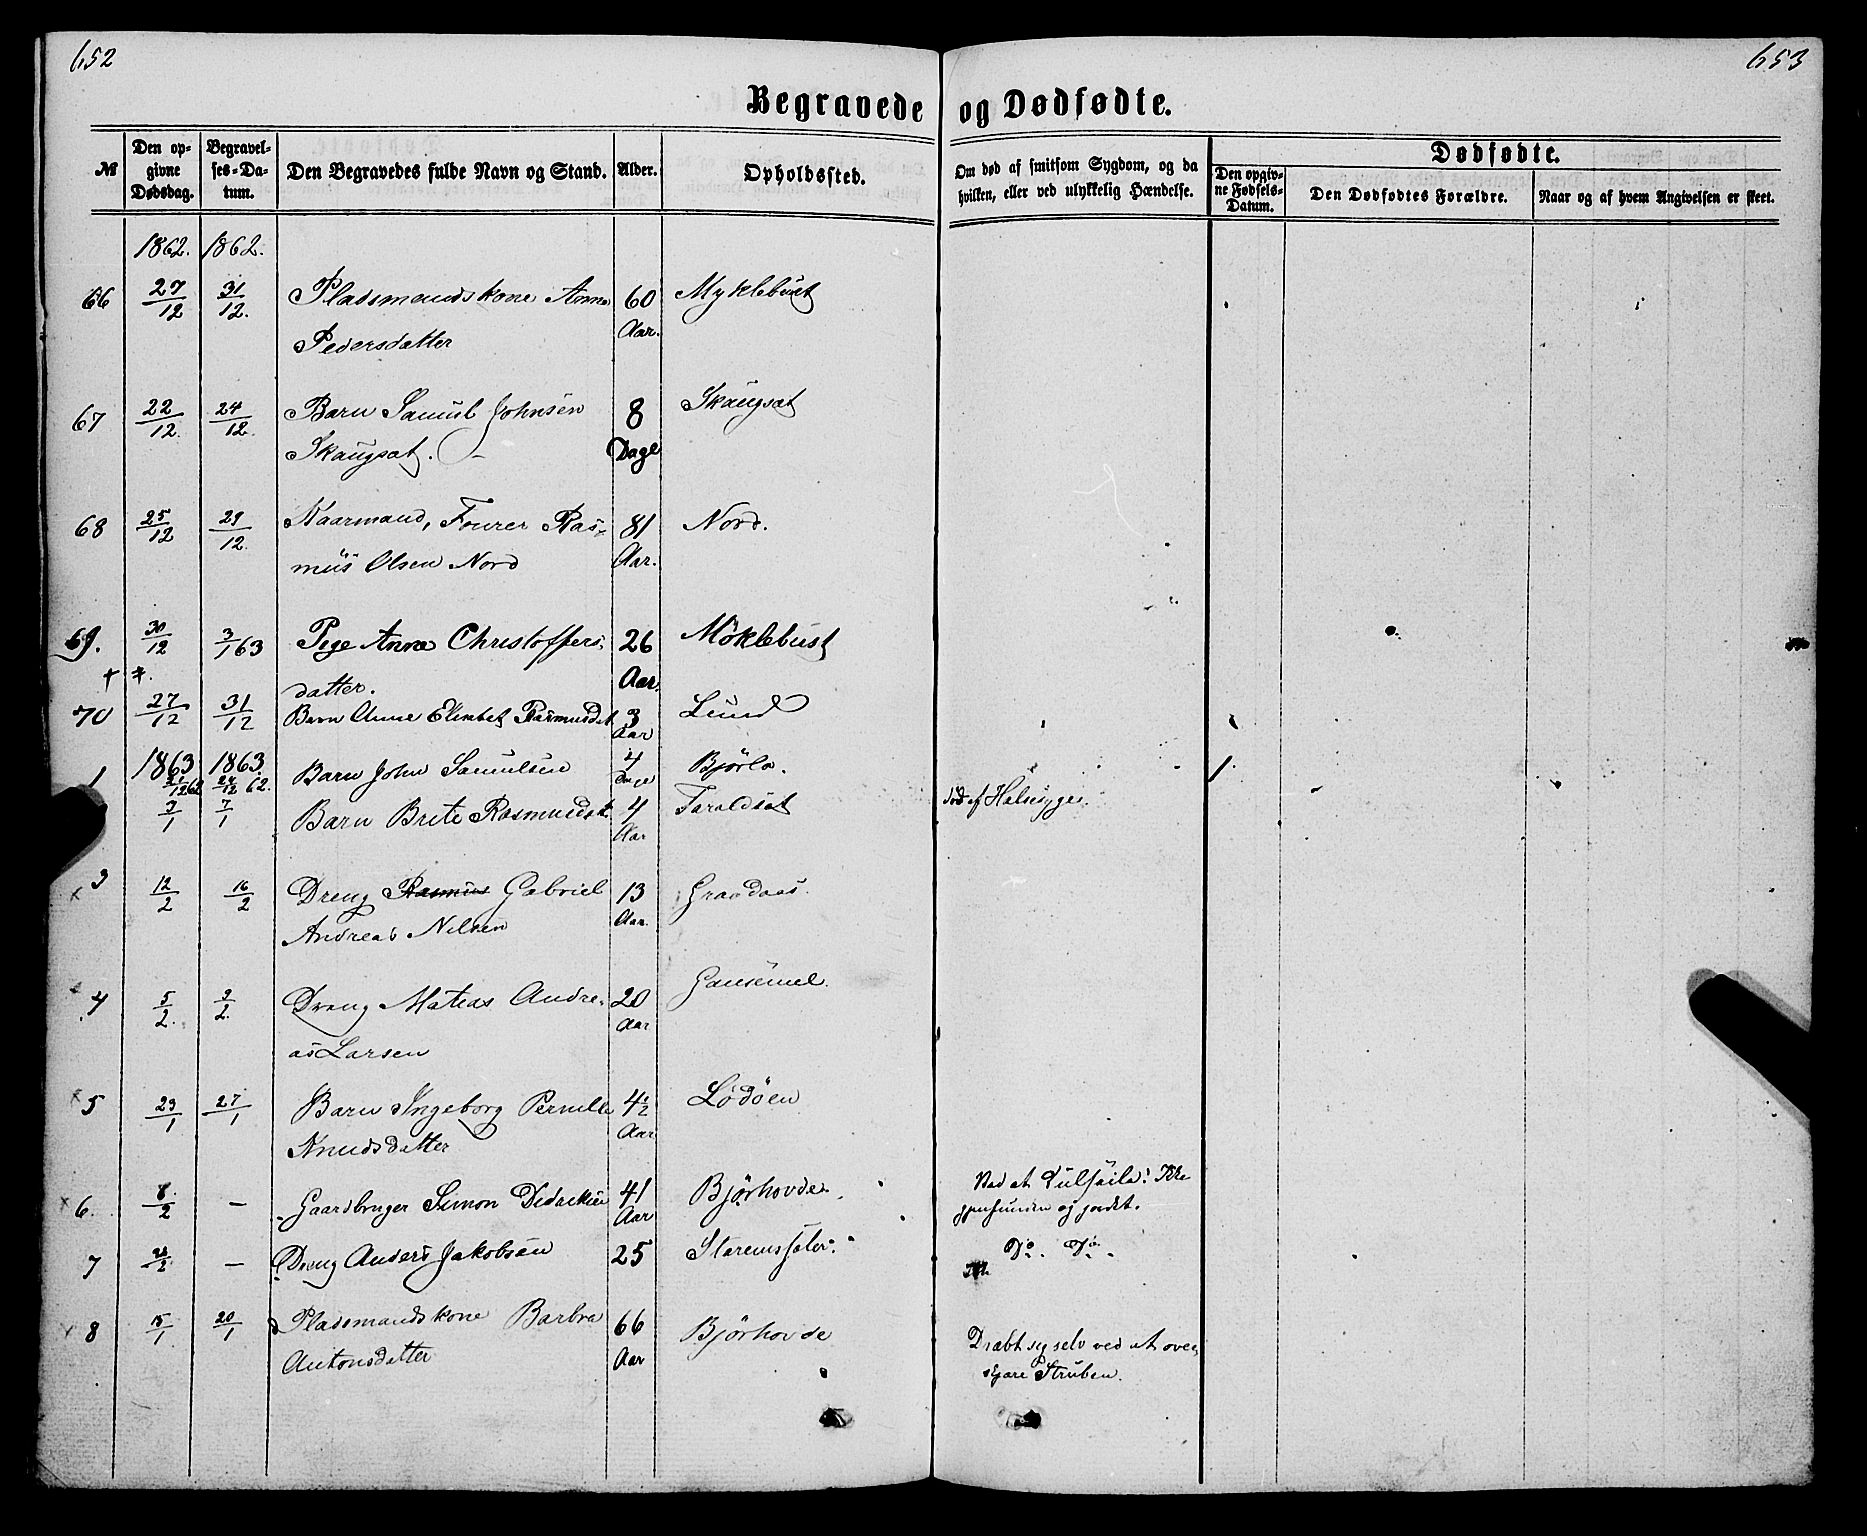 652
653
Begravede og Dødfødte.
№ Den opgivne Dødsdag. Begravelses-Datum. Den Begravedes fulde Navn og Stand. Alder. Opholdssted. Om død af smitsom Sygdom, og da hvilken, eller ved ulykkelig Hændelse. Dødfødte.
Den opgivne Fødsels-Datum. Den Dødfødtes Forældre. Naar og af hvem Angivelsen er skeet.
1862. 1862.
66 27/12 31/12. Pladsmandskone Anne 60 Myklebust
Pedersdatter Aar.
67 22/12. 24/12. Barn Samuel Johnsen 8 Skaugsæt
Skaugsæt. Dage
68 25/12 29/12. Kaarmand, Fourer Ras- 81 Nord.
mus Olsen Nord Aar.
69. 30/12 3/1 63 Pige Anne Christoffers- 26 Möklebust
datter. Aar.
70 27/12 31/12 Barn Anne Elisabet Rasmusdat 3 Lund
Aar
1863 1863
1 /12 62 24/12 62. Barn John Samulsen 4 Björlo.
Dage
3/1 7/1 Barn Brite Rasmusdt. 4 Taraldset død af Halssyge.
Aar
3 12/2 16/2 Dreng Rasmus Gabriel 13 Graadaas.
Andreas Nilsen Aar.
4 5/2. 9/2. Dreng Matias Andre- 20 Gausemel.
as Larsen Aar
5 23/1 27/1 Barn Ingeborg Pernille 4½ Lødøen
Knudsdatter Aar
6. 8/2 – Gaardbruger Simon Didriksen 41 Bjørhovde. Ikke
Aar og jordet.
7 /2 – Dreng Anders Jakobsen 25 Do. Do.
8 15/1 20/1 Pladsmandskone Barbra 66 Bjørhovde Dræbt sig selv ved at over-
Antonsdatter Aar skjære Struben.